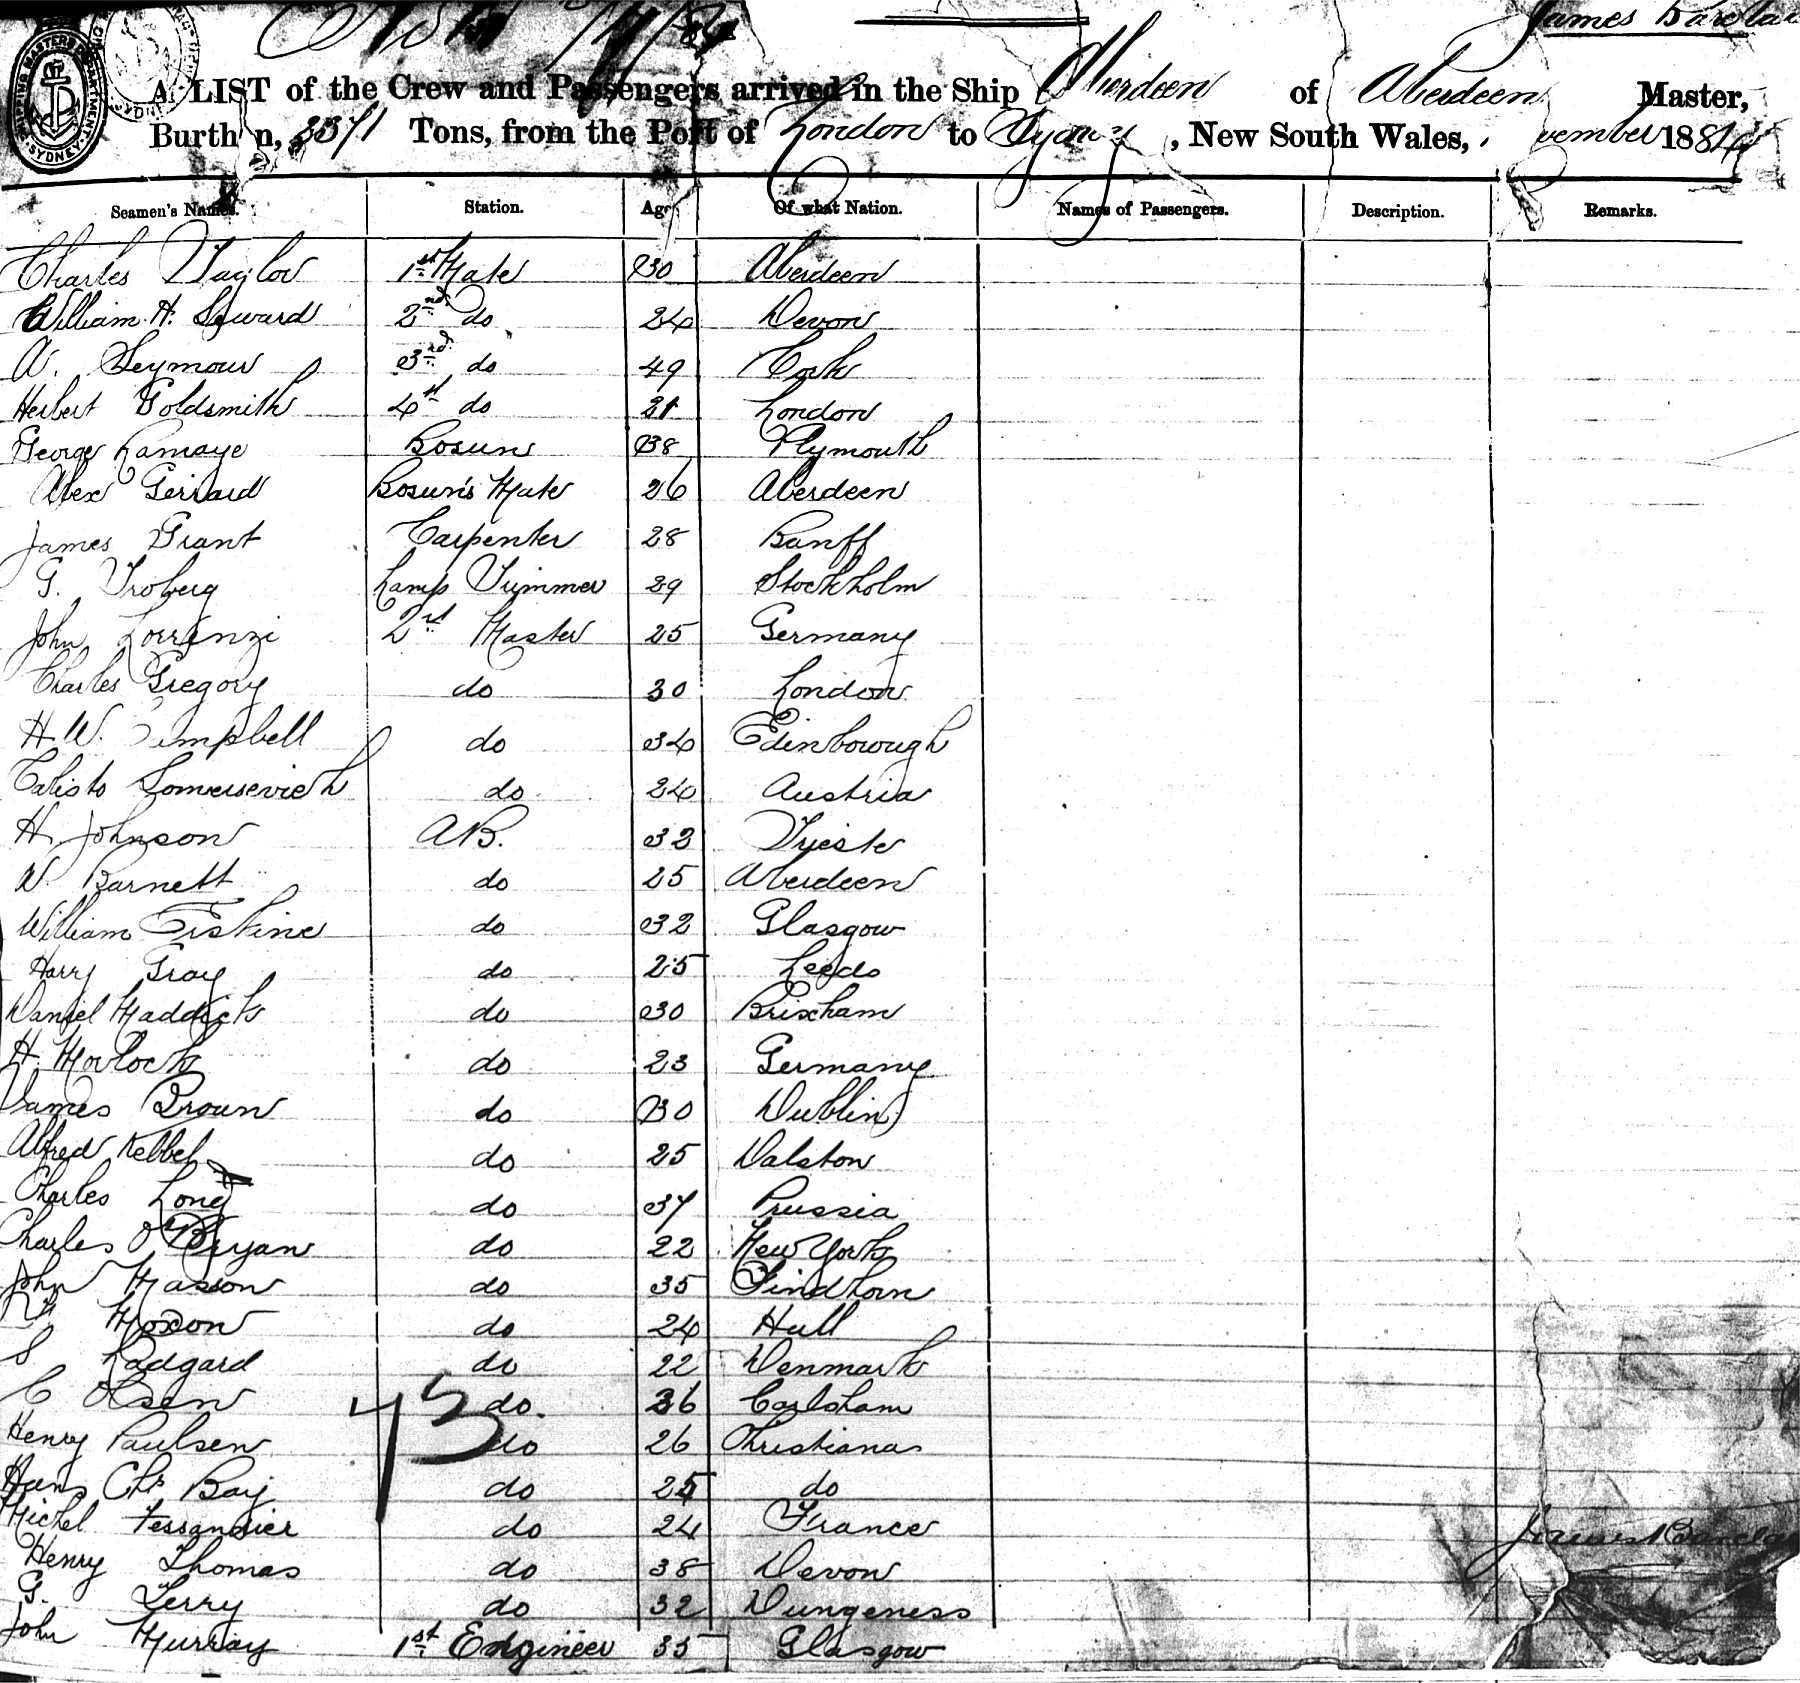 James Barclay
A LIST of the Crew and Passengers arrived in the Ship Aberdeen of Aberdeen Master,
Burthen, 2371 Tons, from the Port of London to Sydney, New South Wales, November 1884
SHIPPING MASTERS DEPARTMENT SYDNEY
Seamen's Names. Station. Age. Of what Nation. Names of Passengers. Description. Remarks.
Charles Taylor 1st Mate 30 Aberdeen
William H. Seward 2nd do 24 Devon
W. Seymour 3rd do 49 Cork
Herbert Goldsmith 4th do 21 London
George Lamaye Bosun 38 Plymouth
Alex Gerrard Bosun's Mate 26 Aberdeen
James Grant Carpenter 28 Banff
G. Troberg Lamp Trimmer 29 Stockholm
John Lorrenzi 2r Master 25 Germany
Charles Gregory do 30 London
H. W. do 34 Edinborough
Calisto do 24 Austria
H. Johnson AB. 32 Trieste
W. Barnett do 25 Aberdeen
William Erskine do 32 Glasgow
Harry Gray do 25 Leeds
Daniel Maddick do 30 Brixham
H. Morlock do 23 Germany
James Broun do 30 Dublin
Alfred Kebbel do 25 Dalston
Charles Long do 37 Prussia
Charles O'Bryan do 22 New York
John Masson do 35 Findhorn
Moxon do 24 Hull
S Ladgard do 22 Denmark
C Olsen do. 36 Carlsham
Henry Paulsen do 26 Christiana
Hans Chr Bay do 25 do
Michel Tessandier do 24 France
James Barclay
Henry Thomas do 38 Devon
G. Terry do 32 Dungeness
John Murray 1st Engineer 35 Glasgow
73